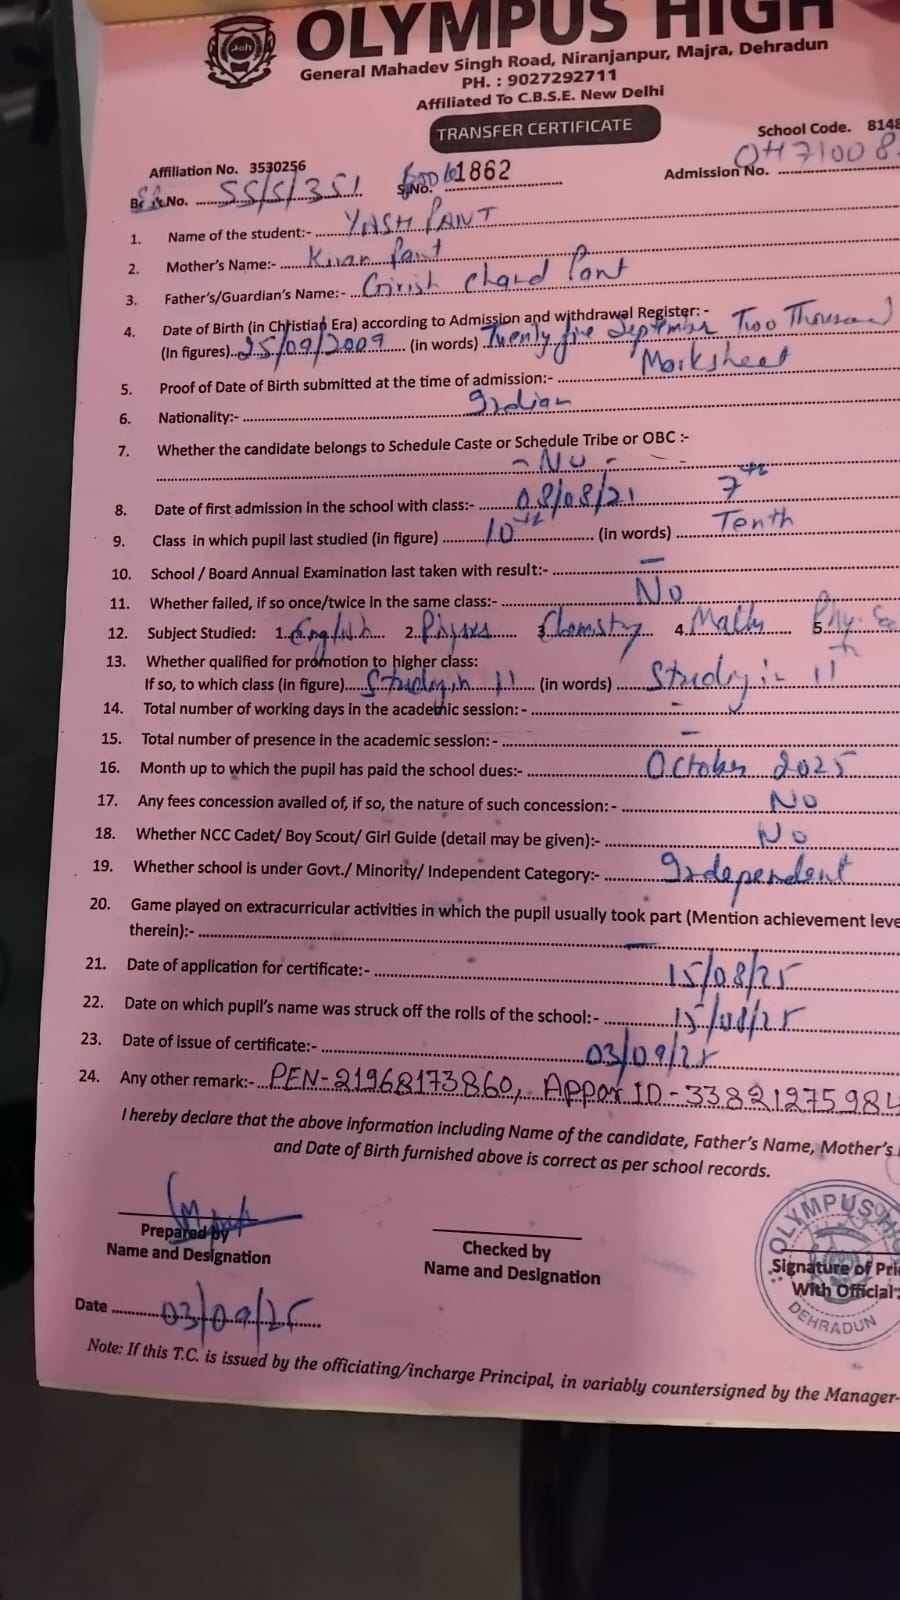 OLYMPUS HIGH
General Mahadev Singh Road, Niranjanpur, Majra, Dehradun
PH. : 9027292711
Affiliated To C.B.S.E. New Delhi
TRANSFER CERTIFICATE
School Code. 8148
Affiliation No. 3530256
S.No. 1862
Admission No. OH71008
No. SS/S/351
1. Name of the student:- YASH PANT
2. Mother's Name:- Kiran Pant
3. Father's/Guardian's Name:- Girish Chand Pant
4. Date of Birth (in Christian Era) according to Admission and withdrawal Register: -
(In figures) 25/09/2009 (in words) Twenty five September Two Thousand
5. Proof of Date of Birth submitted at the time of admission:- Marksheet
6. Nationality:- Indian
7. Whether the candidate belongs to Schedule Caste or Schedule Tribe or OBC :-
- No -
8. Date of first admission in the school with class:- 08/08/21 7th
9. Class in which pupil last studied (in figure) 10th (in words) Tenth
10. School / Board Annual Examination last taken with result:- —
11. Whether failed, if so once/twice in the same class:- No
12. Subject Studied: 1. English 2. Physics 3. Chemstry 4. Math 5. Phy.
13. Whether qualified for promotion to higher class:
If so, to which class (in figure) Studying in 11 (in words) Studying in 11th
14. Total number of working days in the academic session: - -
15. Total number of presence in the academic session: - -
16. Month up to which the pupil has paid the school dues:- October 2025
17. Any fees concession availed of, if so, the nature of such concession: - No
18. Whether NCC Cadet/ Boy Scout/ Girl Guide (detail may be given):- No
19. Whether school is under Govt./ Minority/ Independent Category:- Independent
20. Game played on extracurricular activities in which the pupil usually took part (Mention achievement leve
therein):- —
21. Date of application for certificate:- 15/08/25
22. Date on which pupil's name was struck off the rolls of the school:- 15/08/25
23. Date of issue of certificate:- 03/09/25
24. Any other remark:- PEN-21968173860, Appar ID-33821275984
I hereby declare that the above information including Name of the candidate, Father's Name, Mother's
and Date of Birth furnished above is correct as per school records.
Prepared by
Name and Designation
Checked by
Name and Designation
OLYMPUS HI
Signature of Pri
With Official
DEHRADUN
Date 03/09/25
Note: If this T.C. is issued by the officiating/incharge Principal, in variably countersigned by the Manager-